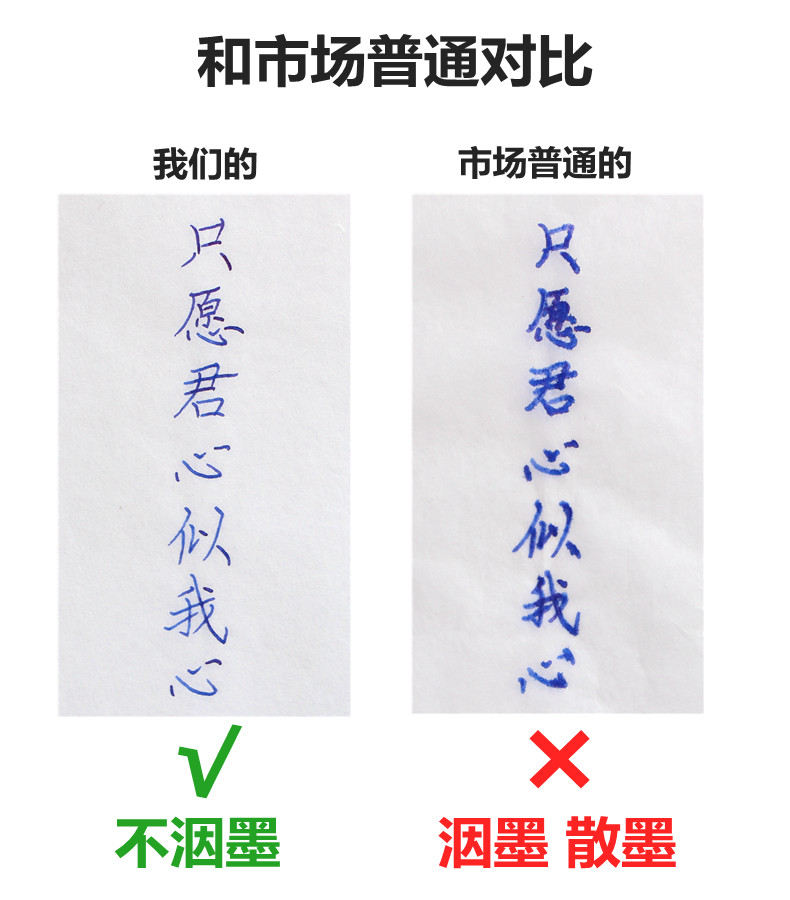 和市场普通对比
我们的
市场普通的
只愿君心似我心
只愿君心似我心
不洇墨
洇墨 散墨